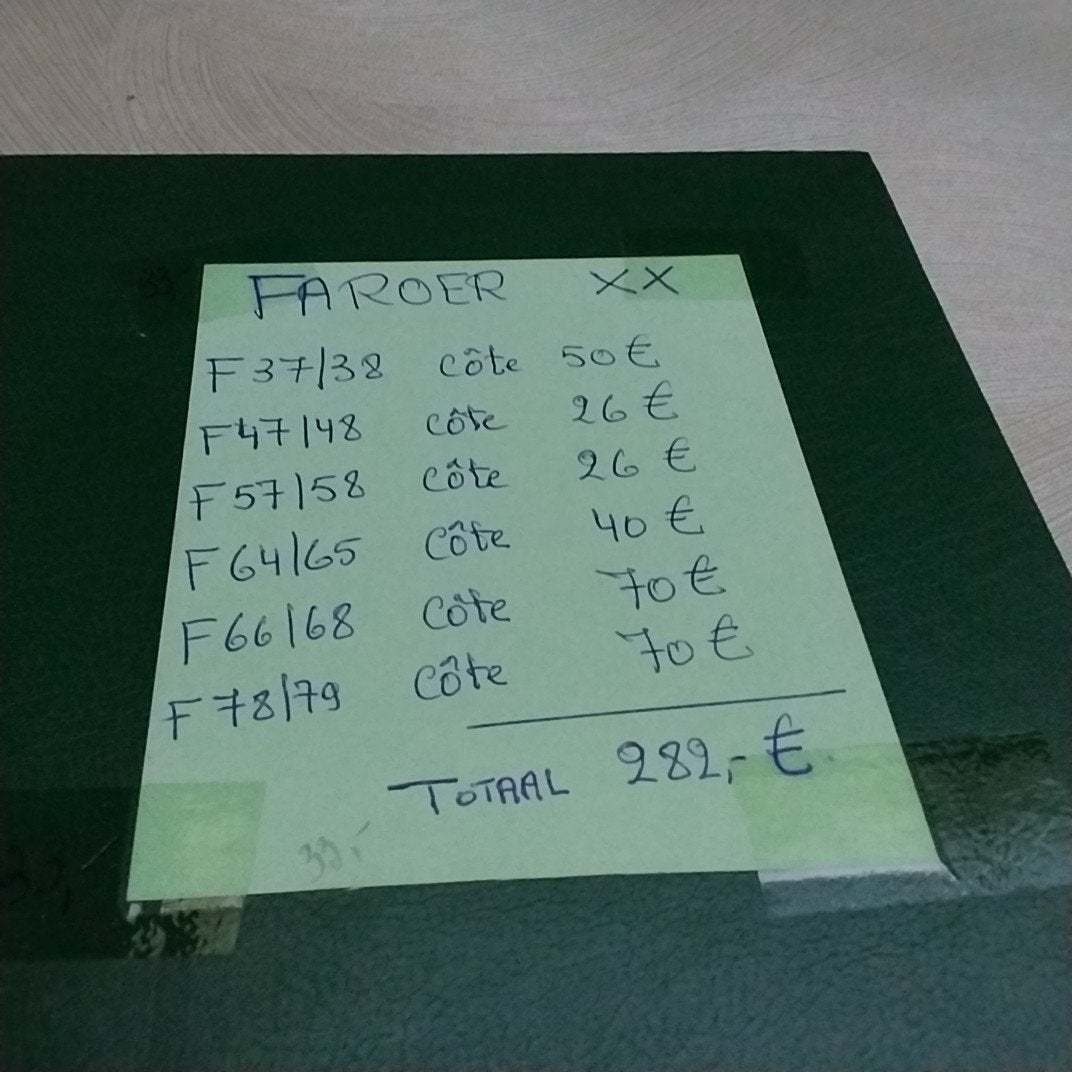 FAROER XX
F37/38 côte 50€
F47/48 côte 26€
F57/58 côte 26€
F64/65 côte 40€
F66/68 côte 70€
F78/79 côte 70€
TOTAAL 282,- €
33,-